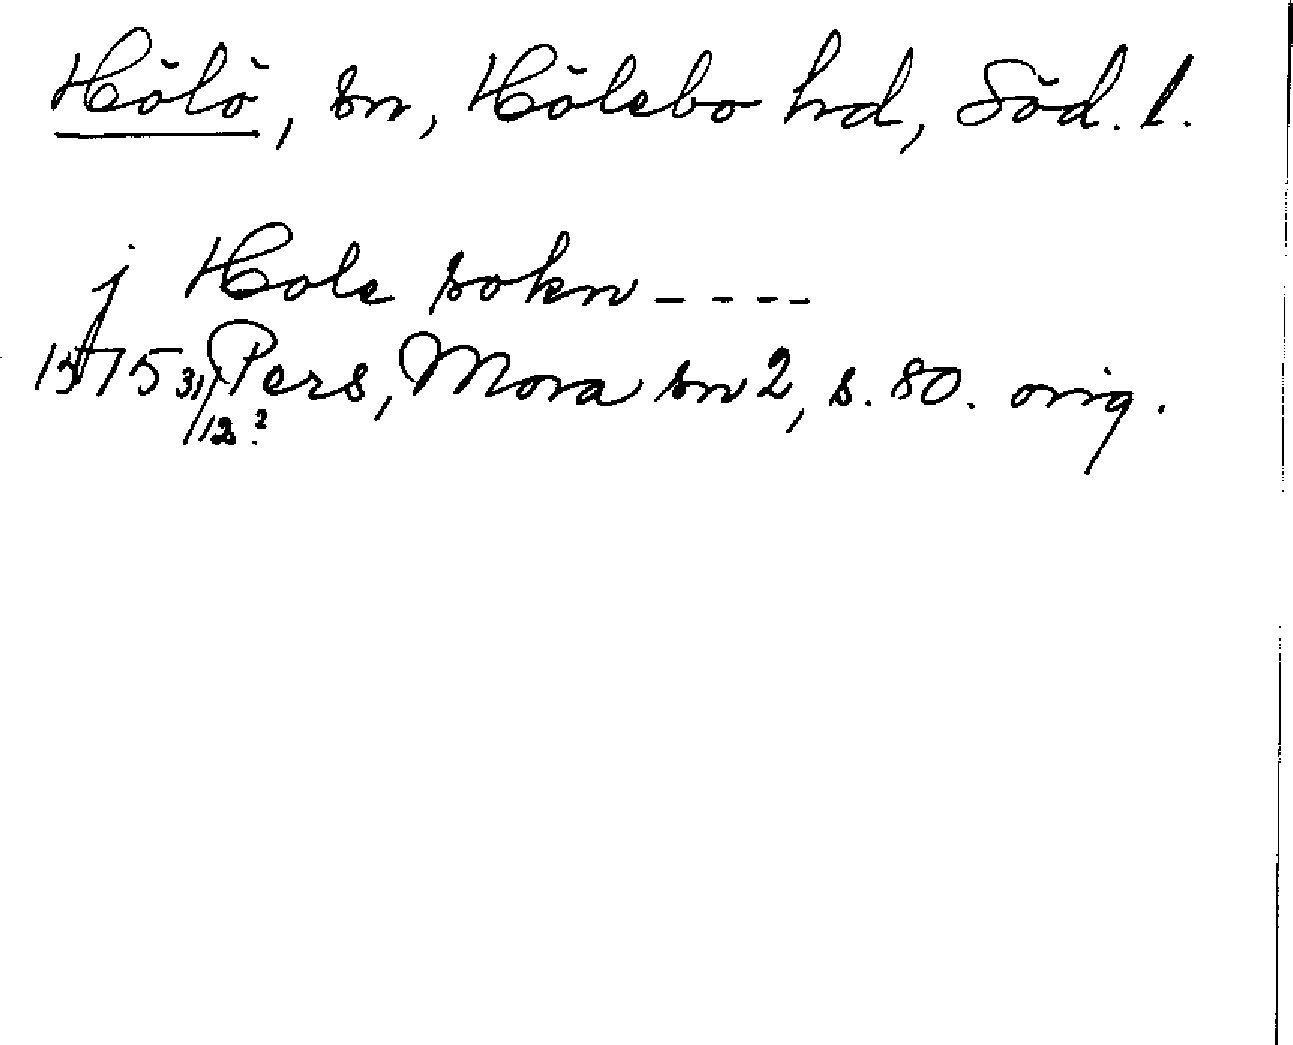 Hölö, sn, Hölebo hd, Söd. l.
j Hole sokn ----
1575 31/12? Pers, Mora sn 2, s. 80. orig.